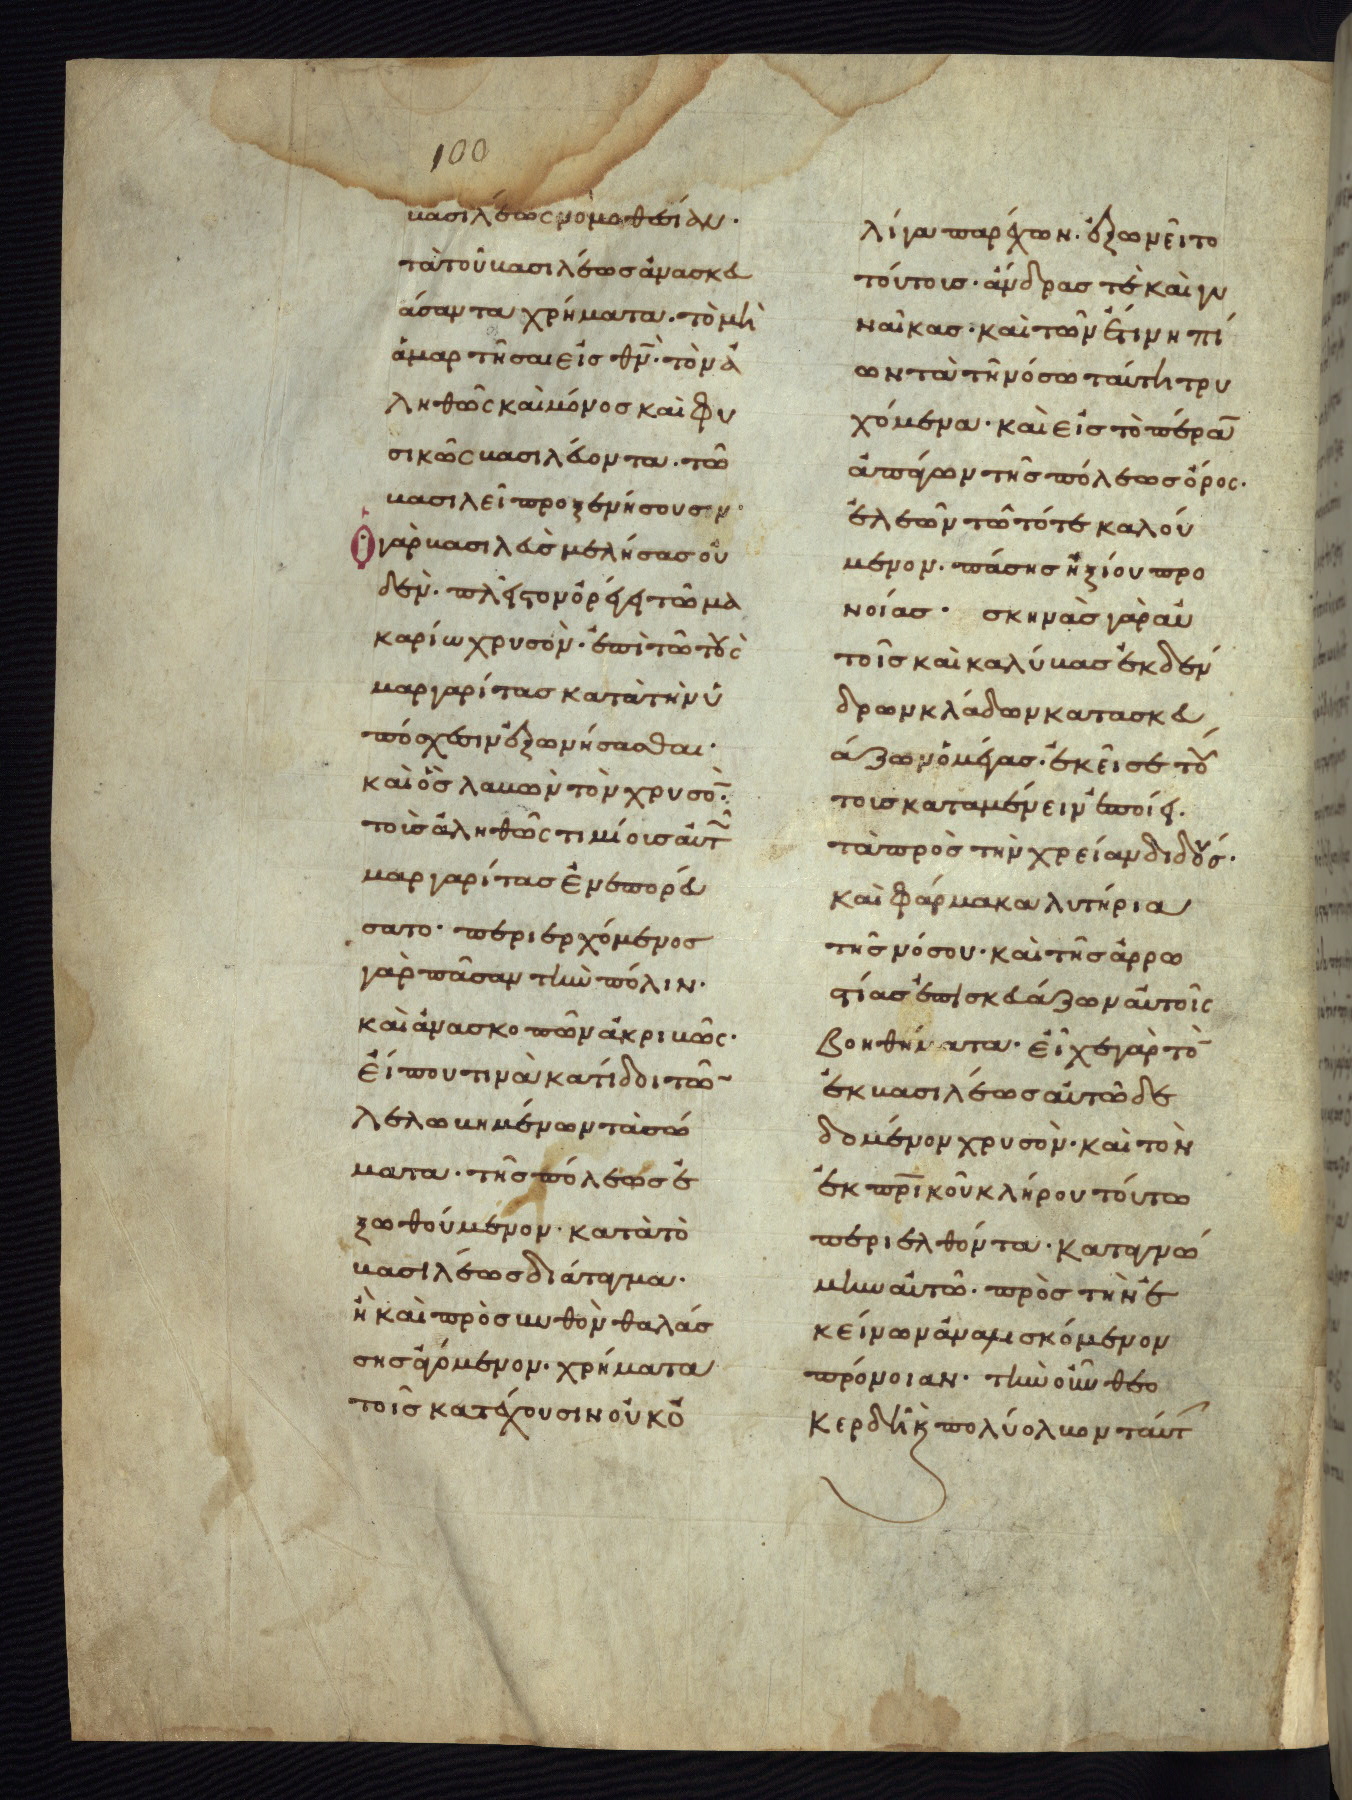 100
βασιλέως νομοθεσίαν·
τὰ τοῦ βασιλέως ἀνασκευ
άσαντα χρήματα· τὸ μὴ
ἁμαρτῆσαι εἰς θν̄· τὸν ἀ
ληθῶς καὶ μόνος καὶ φυ
σικῶς βασιλεύοντα· τῶ
βασιλεῖ προξενήσουσιν·
Ὁ γὰρ βασιλεὺς μελήσας οὐ
δὲν· πλεῖστον ὀρέγει τῶ μα
καρίω χρυσὸν· ἐπὶ τῶ τοὺς
μαργαρίτας κατὰ τὴν ὑ
πόσχεσιν ἐξωνήσασθαι·
καὶ ὃς λαβὼν τὸν χρυσὸ̄·
τοῖς ἀληθῶς τιμίοις αὐτ
μαργαρίτας ἐνεπορεύ
σατο· περιερχόμενος
γὰρ πᾶσαν τὴν πόλιν·
καὶ ἀνασκοπῶν ἀκριβῶς·
εἴ που τινὰ κατίδοι τῶ̄
λελωβημένων τὰ σώ
ματα· τῆς πόλεως ἐ
ξωθούμενον· κατὰ τὸ
βασιλέως διάταγμα·
ἢ καὶ πρὸς βυθὸν θαλάσ
σης ἀγόμενον· χρήματα
τοῖς κατέχουσιν οὐκ ὀ
λίγα παρέχων· ἐξωνεῖτο
τούτοις· ἄνδρας τὲ καὶ γυ
ναῖκας· καὶ τῶν ἔτι νηπί
ων τὰ τῆ νόσω ταύτη τρυ
χόμενα· καὶ εἰς τὸ πέρᾱ
ἀπάγων τῆς πόλεως ὄρος·
ἐλεῶν τῶ τότε καλού
μενον· πάσης ἠξίου προ
νοίας· σκηνὰς γὰρ αὐ
τοῖς καὶ καλύβας ἐκ δέν
δρων κλάδων κατασκευ
άζων ὁ μέγας· ἐκεῖσε τού
τοις καταμένειν ἐποίει·
τὰ πρὸς τὴν χρείαν διδούς·
καὶ φάρμακα λυτήρια
τῆς νόσου· καὶ τῆς ἀρρω
στίας ἐπισκευάζων αὐτοῖς
βοηθήματα· εἶχε γὰρ τὸ̄
ἐκ βασιλέως αὐτῶ δε
δομένον χρυσὸν· καὶ τὸν
ἐκ πρ̄ικοῦ κλήρου τούτω
περιελθόντα· κατεγνώ
μην αὐτῶ· πρὸς τὴν ἐ
κείνων ἀναλισκόμενον
πρόνοιαν· τὴν οὖν θεο
κερδῆ κ πολύολβον ταύτ